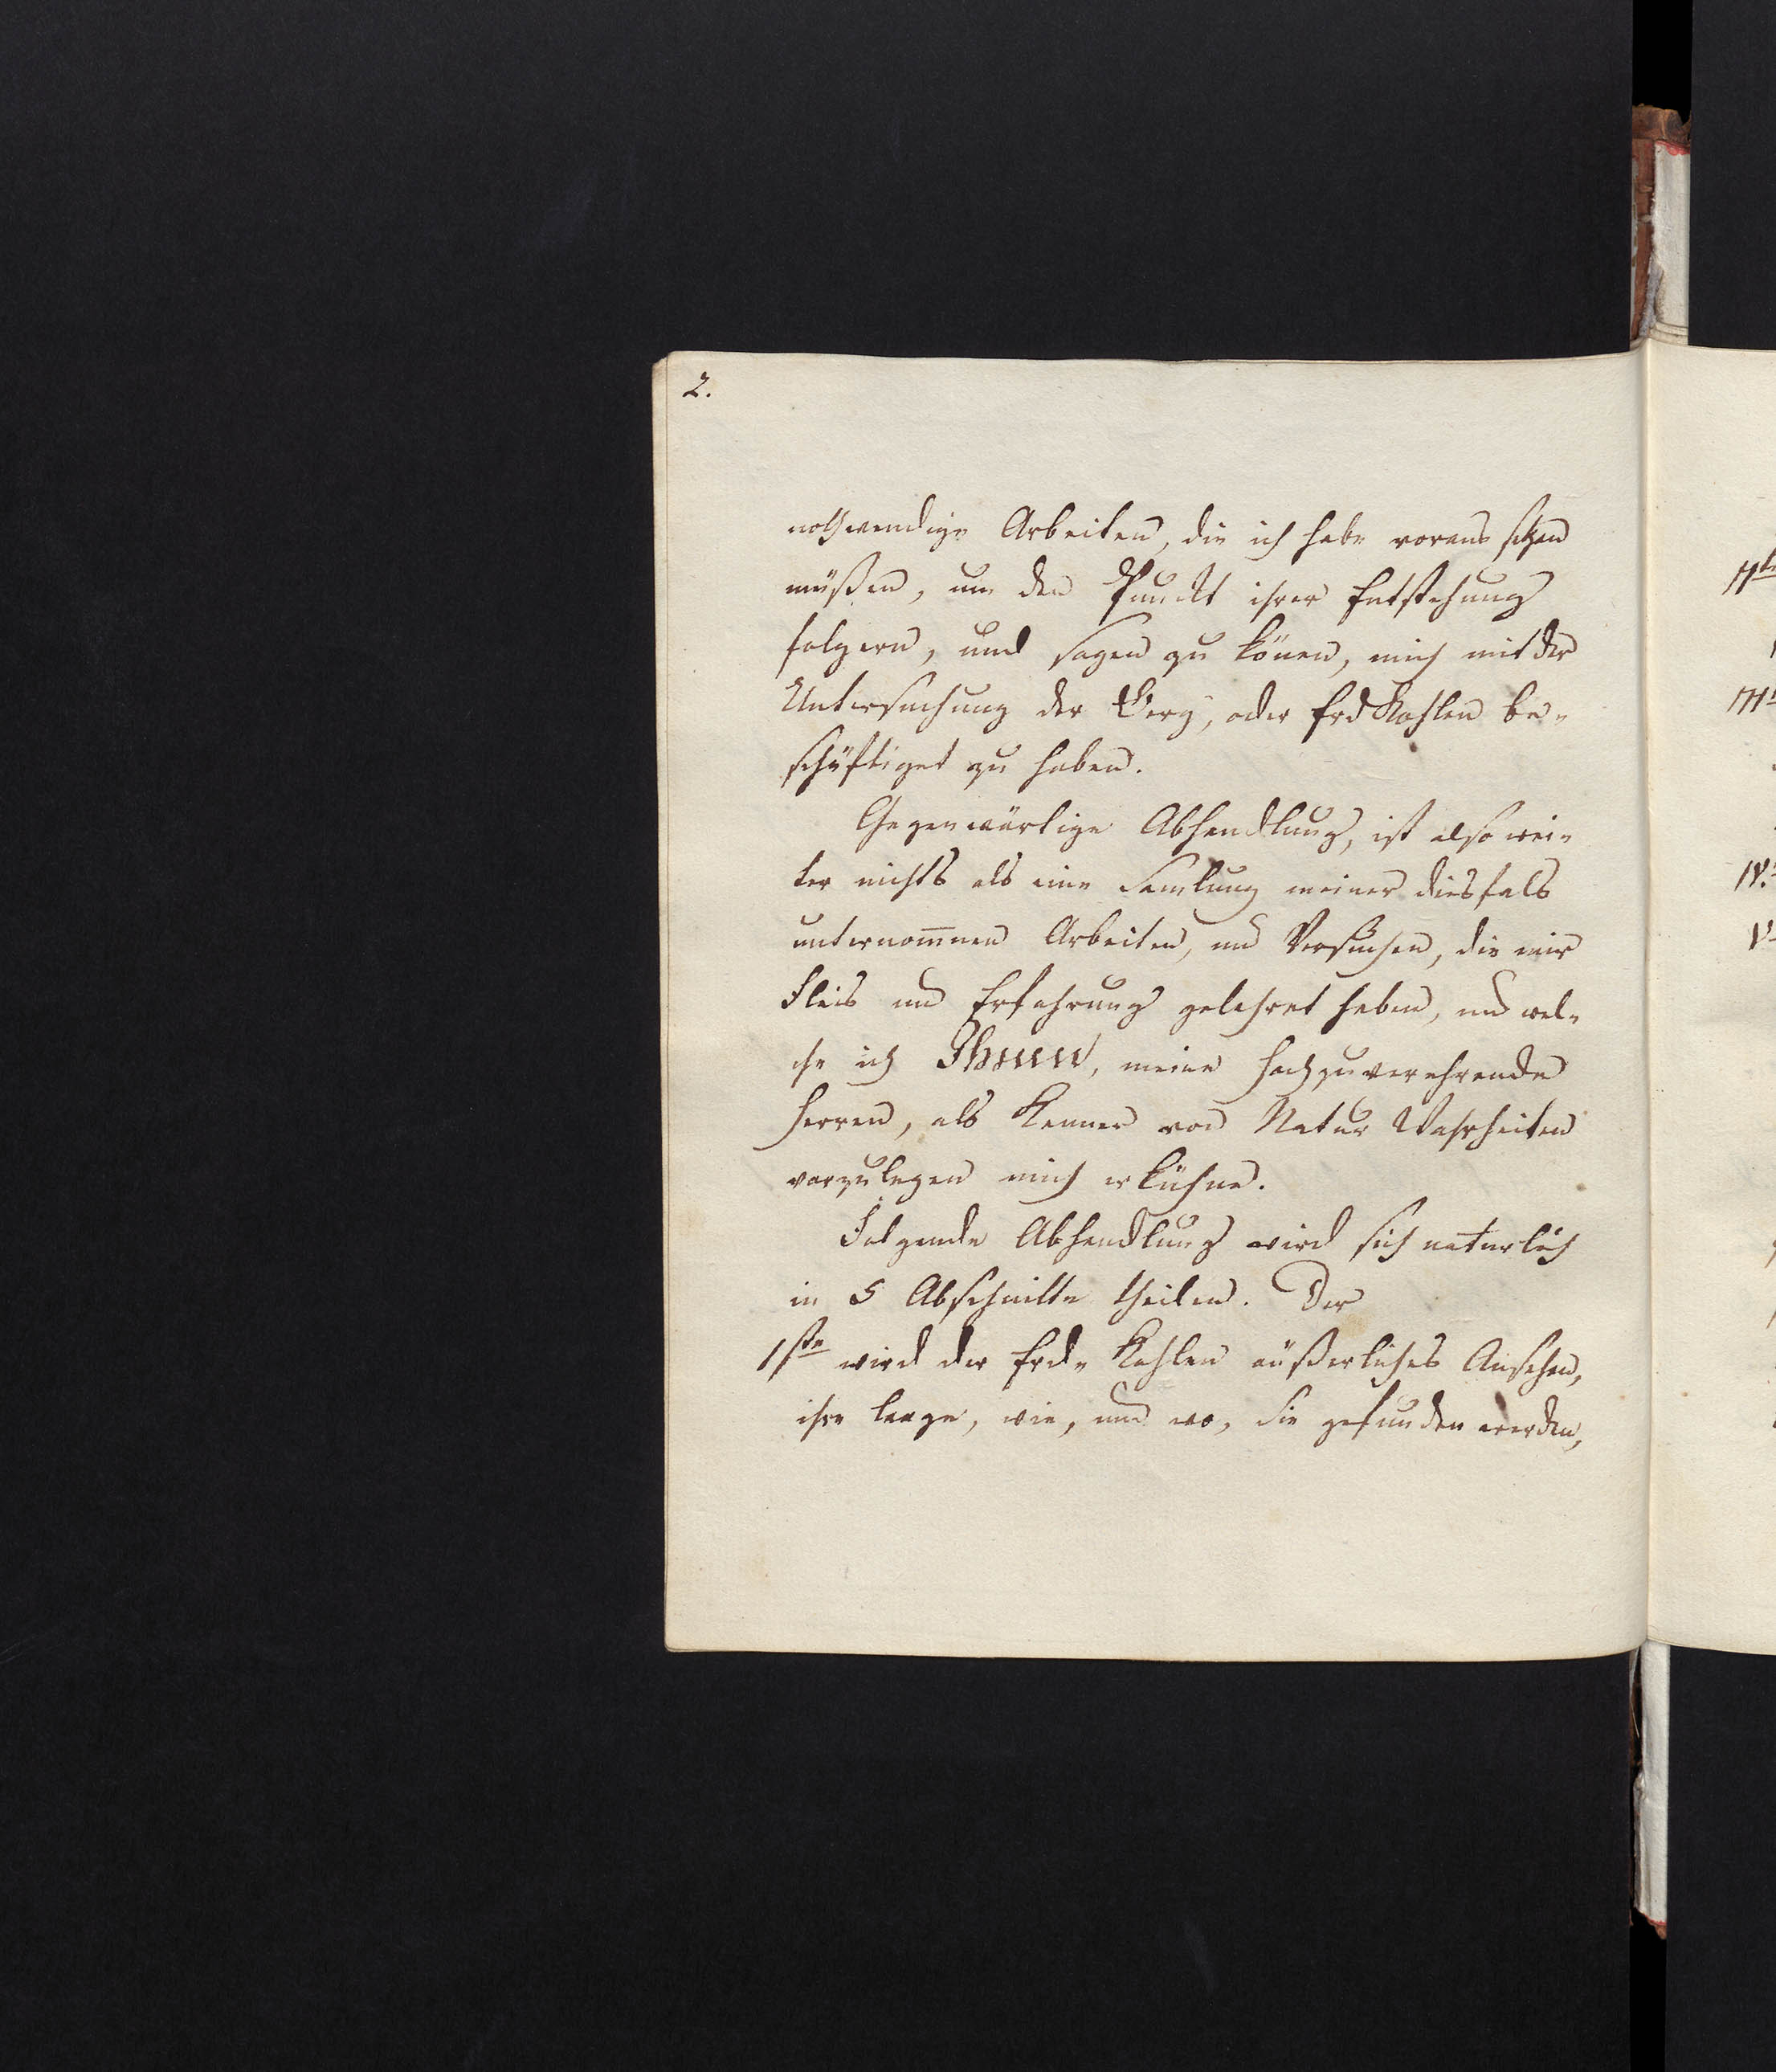 2.
nothwendige Arbeiten, die ich habe voraus setzen
müßen, um den Punckt ihrer Entstehung
folgern, und sagen zu könen, mich mit der
Untersuchung der Berg, oder Erd Kohlen be-
schäftiget zu haben.
Gegenwärtige Abhandlung, ist also wei-
ter nichts als eine Samlung meiner diesfals
unternom̅nen Arbeiten, und Versuchen, die mir
Fleis und Erfahrung gelehret haben, und wel-
che ich Ihnen, meine hochzuverehrende
Herren, als Kenner von Natur Wahrheiten
vorzulegen mich erkühne.
Folgende Abhandlung wird sich naturlich
in 5 Abschnitte theilen. Der
1ste wird der Erd- Kohlen äußerliches Ansehen,
ihre Laage, wie, und wo, sie gefunden werden,
IIte
III
IV.
V